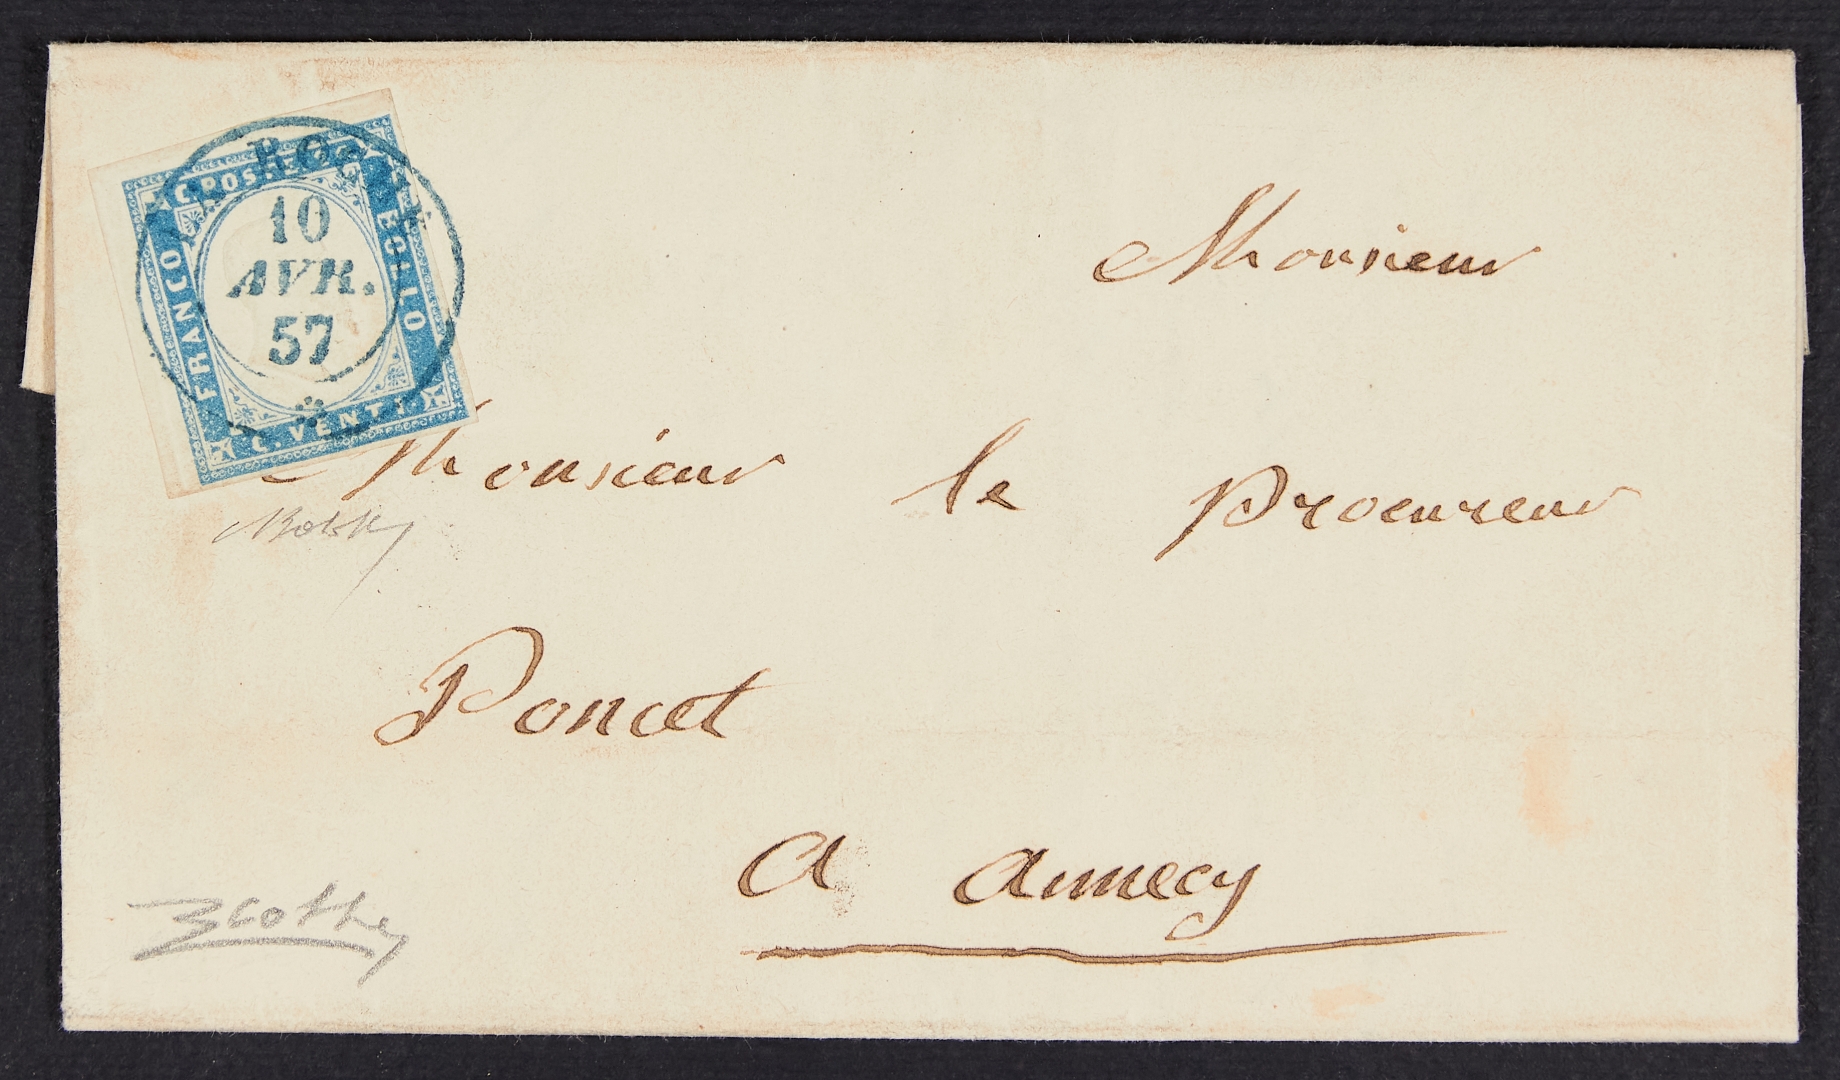 C. POSTE
FRANCO
BOLLO
C. VENTI
RO
10
AVR.
57
Monsieur
Monsieur le Procureur
Poncet
A Annecy